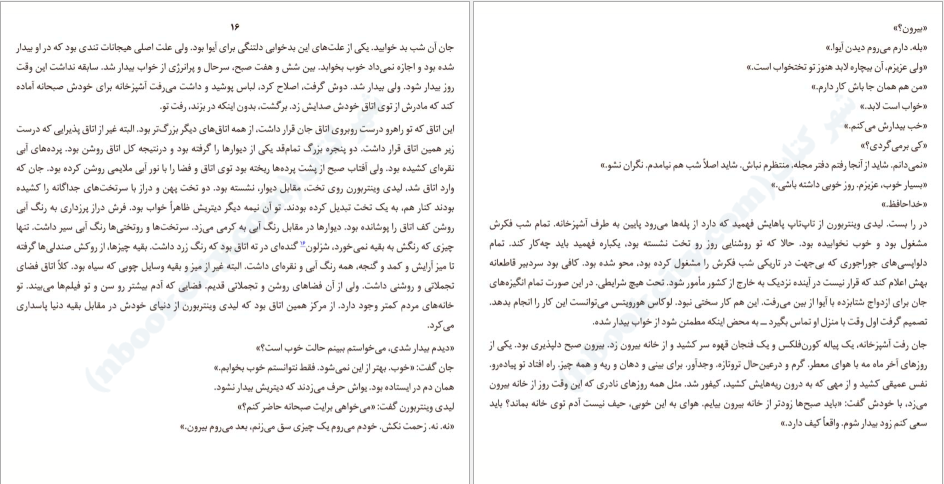 ۱۶
جان آن شب بد خوابید. یکی از علت‌های این بدخوابی دلتنگی برای آیوا بود. ولی علت اصلی هیجانات تندی بود که در او بیدار
شده بود و اجازه نمی‌داد خوب بخوابد. بین شش و هفت صبح، سرحال و پرانرژی از خواب بیدار شد. سابقه نداشت این وقت
روز بیدار شود. ولی بیدار شد. دوش گرفت، اصلاح کرد، لباس پوشید و داشت می‌رفت آشپزخانه برای خودش صبحانه آماده
کند که مادرش از توی اتاق خودش صدایش زد. برگشت، بدون اینکه در بزند، رفت تو.
این اتاق که تو راهرو درست روبروی اتاق جان قرار داشت، از همه اتاق‌های دیگر بزرگ‌تر بود. البته غیر از اتاق پذیرایی که درست
زیر همین اتاق قرار داشت. دو پنجره بزرگ تمام‌قد یکی از دیوارها را گرفته بود و درنتیجه کل اتاق روشن بود. پرده‌های آبی
نقره‌ای کشیده بود. ولی آفتاب صبح از پشت پرده‌ها ریخته بود توی اتاق و فضا را با نور آبی ملایمی روشن کرده بود. جان که
وارد اتاق شد، لیدی وینتربورن روی تخت، مقابل دیوار، نشسته بود. دو تخت پهن و دراز با سرتخت‌های جداگانه را کشیده
بودند کنار هم، به یک تخت تبدیل کرده بودند. تو آن نیمه دیگر دیتریش ظاهراً خواب بود. فرش دراز پرزداری به رنگ آبی
روشن کف اتاق را پوشانده بود. دیوارها در مقابل رنگ آبی به کرمی می‌زد. سرتخت‌ها و روتختی‌ها رنگ آبی سیر داشت. تنها
چیزی که رنگش به بقیه نمی‌خورد، شزلون گنده‌ای در ته اتاق بود که رنگ زرد داشت. بقیه چیزها، از روکش صندلی‌ها گرفته
تا میز آرایش و کمد و گنجه، همه رنگ آبی و نقره‌ای داشت. البته غیر از میز و بقیه وسایل چوبی که سیاه بود. کلاً اتاق فضای
تجملاتی و روشنی داشت. ولی از آن فضاهای روشن و تجملاتی قدیم. فضایی که آدم بیشتر رو سن و تو فیلم‌ها می‌بیند. تو
خانه‌های مردم کمتر وجود دارد. از مرکز همین اتاق بود که لیدی وینتربورن از دنیای خودش در مقابل بقیه دنیا پاسداری
می‌کرد.
«دیدم بیدار شدی، می‌خواستم ببینم حالت خوب است؟»
جان گفت: «خوب. بهتر از این نمی‌شود. فقط نتوانستم خوب بخوابم.»
همان دم در ایستاده بود. یواش حرف می‌زدند که دیتریش بیدار نشود.
لیدی وینتربورن گفت: «می‌خواهی برایت صبحانه حاضر کنم؟»
«نه. نه. زحمت نکش. خودم می‌روم یک چیزی سق می‌زنم، بعد می‌روم بیرون.»
«بیرون؟»
«بله. دارم می‌روم دیدن آیوا.»
«ولی عزیزم، آن بیچاره لابد هنوز تو تختخواب است.»
«من هم همان جا باش کار دارم.»
«خواب است لابد.»
«خب بیدارش می‌کنم.»
«کی برمی‌گردی؟»
«نمی‌دانم. شاید از آنجا رفتم دفتر مجله. منتظرم نباش. شاید اصلاً شب هم نیامدم. نگران نشو.»
«بسیار خوب، عزیزم. روز خوبی داشته باشی.»
«خداحافظ.»
در را بست. لیدی وینتربورن از تاپ‌تاپ پاهایش فهمید که دارد از پله‌ها می‌رود پایین به طرف آشپزخانه. تمام شب فکرش
مشغول بود و خوب نخوابیده بود. حالا که تو روشنایی روز رو تخت نشسته بود، یکباره فهمید باید چه‌کار کند. تمام
دلواپسی‌های جوراجوری که بی‌جهت در تاریکی شب فکرش را مشغول کرده بود، محو شده بود. کافی بود سردبیر قاطعانه
بهش اعلام کند که قرار نیست در آینده نزدیک به خارج از کشور مأمور شود. تحت هیچ شرایطی. در این صورت تمام انگیزه‌های
جان برای ازدواج شتابزده با آیوا از بین می‌رفت. این هم کار سختی نبود. لوکاس هورویتس می‌توانست این کار را انجام بدهد.
تصمیم گرفت اول وقت با منزل او تماس بگیرد ــ به محض اینکه مطمئن شود از خواب بیدار شده.
جان رفت آشپزخانه، یک پیاله کورن‌فلکس و یک فنجان قهوه سر کشید و از خانه بیرون زد. بیرون صبح دلپذیری بود. یکی از
روزهای آخر ماه مه با هوای معطر. گرم و درعین‌حال تروتازه. وجدآور. برای بینی و دهان و ریه و همه چیز. راه افتاد تو پیاده‌رو.
نفس عمیقی کشید و از مهی که به درون ریه‌هایش کشید، کیفور شد. مثل همه روزهای نادری که این وقت روز از خانه بیرون
می‌زد، با خودش گفت: «باید صبح‌ها زودتر از خانه بیرون بیایم. هوای به این خوبی، حیف نیست آدم توی خانه بماند؟ باید
سعی کنم زود بیدار شوم. واقعاً کیف دارد.»